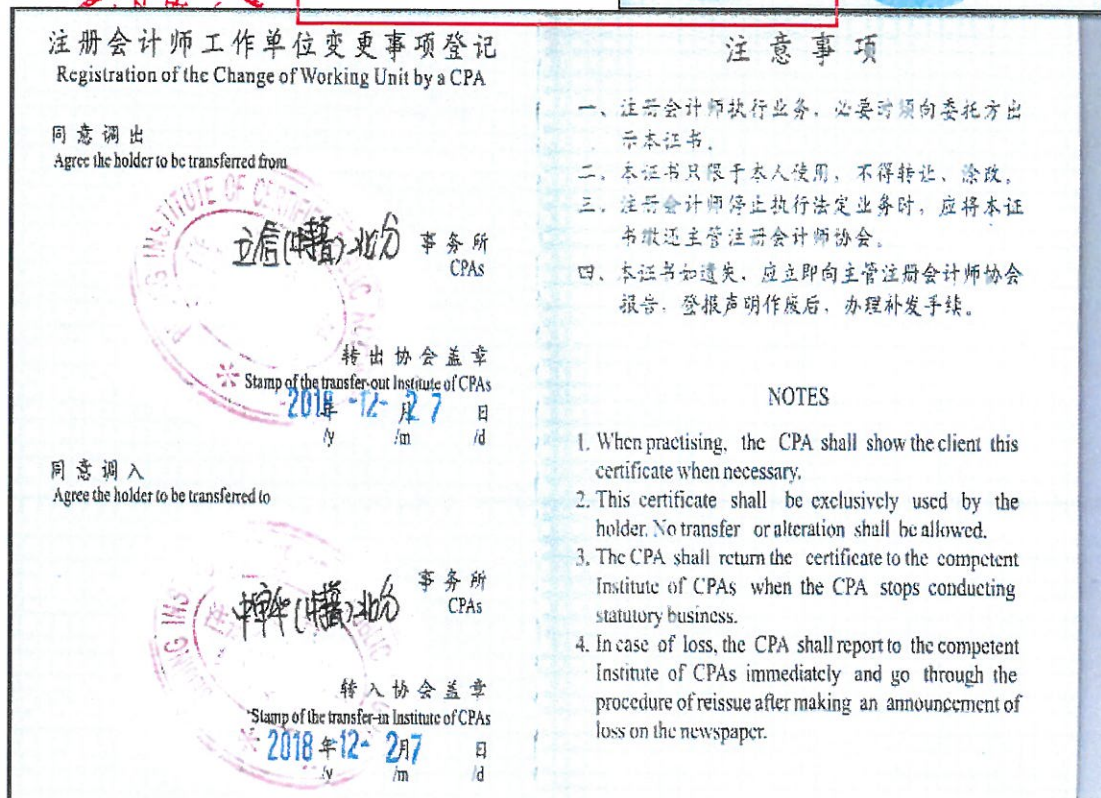 注册会计师工作单位变更事项登记
Registration of the Change of Working Unit by a CPA
同意调出
Agree the holder to be transferred from
立信(特普)北分 事务所
CPAs
转出协会盖章
Stamp of the transfer-out Institute of CPAs
2018年-12-月27日
/y /m /d
同意调入
Agree the holder to be transferred to
(特普)北分 事务所
CPAs
转入协会盖章
Stamp of the transfer-in Institute of CPAs
2018年12-2月7日
/y /m /d
注意事项
一、注册会计师执行业务，必要时须向委托方出
示本证书。
二、本证书只限于本人使用，不得转让、涂改。
三、注册会计师停止执行法定业务时，应将本证
书缴还主管注册会计师协会。
四、本证书如遗失，应立即向主管注册会计师协会
报告，登报声明作废后，办理补发手续。
NOTES
1. When practising, the CPA shall show the client this
certificate when necessary.
2. This certificate shall be exclusively used by the
holder. No transfer or alteration shall be allowed.
3. The CPA shall return the certificate to the competent
Institute of CPAs when the CPA stops conducting
statutory business.
4. In case of loss, the CPA shall report to the competent
Institute of CPAs immediately and go through the
procedure of reissue after making an announcement of
loss on the newspaper.